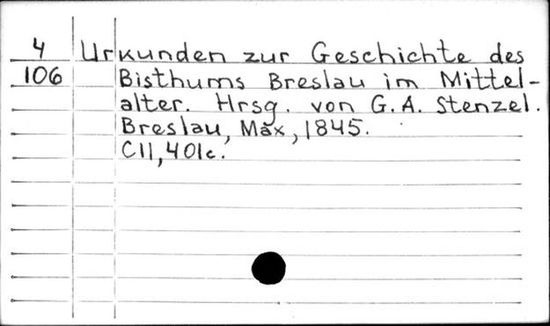 4 Urkunden zur Geschichte des
106 Bisthums Breslau im Mittel-
alter. Hrsg. von G.A. Stenzel.
Breslau, Max, 1845.
CII, 401c.